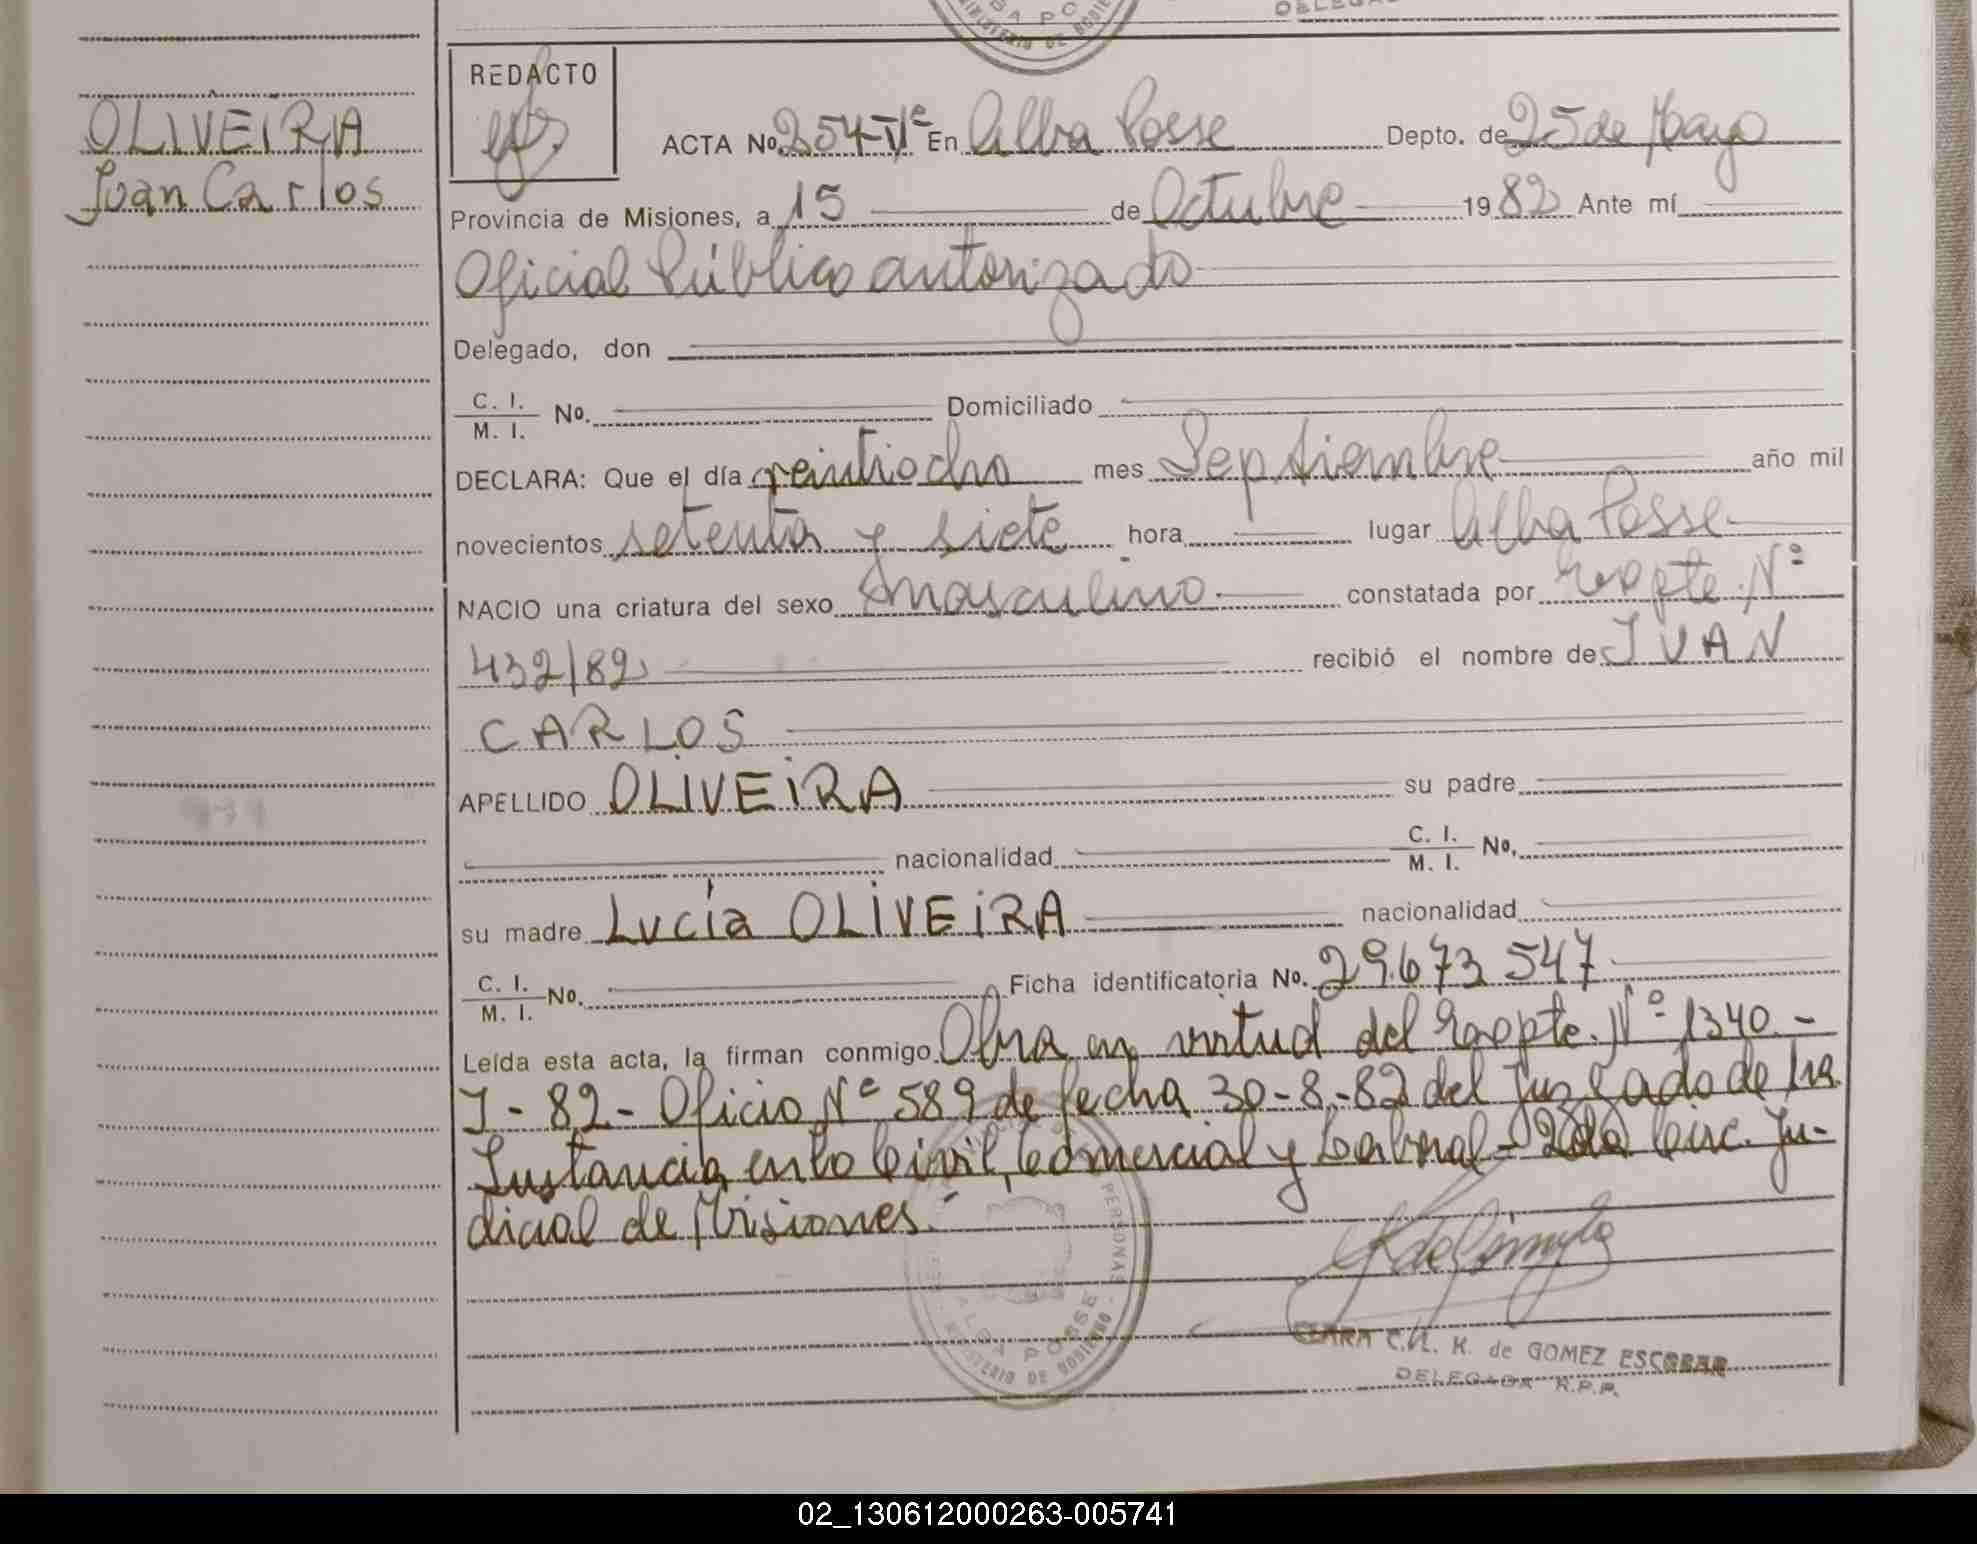 BA PO
MINISTERIO DE GOBIE
DELEGA
REDACTO
OLIVEIRA
Juan Carlos
ACTA No. 254-Vº En Alba Posse Depto. de 25 de Mayo
Provincia de Misiones, a 15 de Octubre 1982 Ante mí
Oficial Público autorizado
Delegado, don
C. I.
M. I. No. Domiciliado
DECLARA: Que el día veintiocho mes Septiembre año mil
novecientos setenta y siete hora lugar Alba Posse
NACIO una criatura del sexo masculino constatada por Expte. Nº
432/82 recibió el nombre de JUAN
CARLOS
APELLIDO OLIVEIRA su padre
nacionalidad C. I.
M. I. No.
su madre Lucía OLIVEIRA nacionalidad
C. I.
M. I. No. Ficha identificatoria No. 29.673 547
Leída esta acta, la firman conmigo. Obra en virtud del Expte. Nº 1340.-
J - 82 - Oficio Nº 589 de fecha 30-8-82 del Juzgado de 1ra
Instancia en lo Civil, Comercial y Laboral - 2da Circ. Ju-
dicial de Misiones.-
PERSONAS
ALBA POSSE
MINISTERIO DE GOBIERNO
CLARA K. de GOMEZ ESCOBAR
DELEGADA R.P.P.
02_130612000263-005741